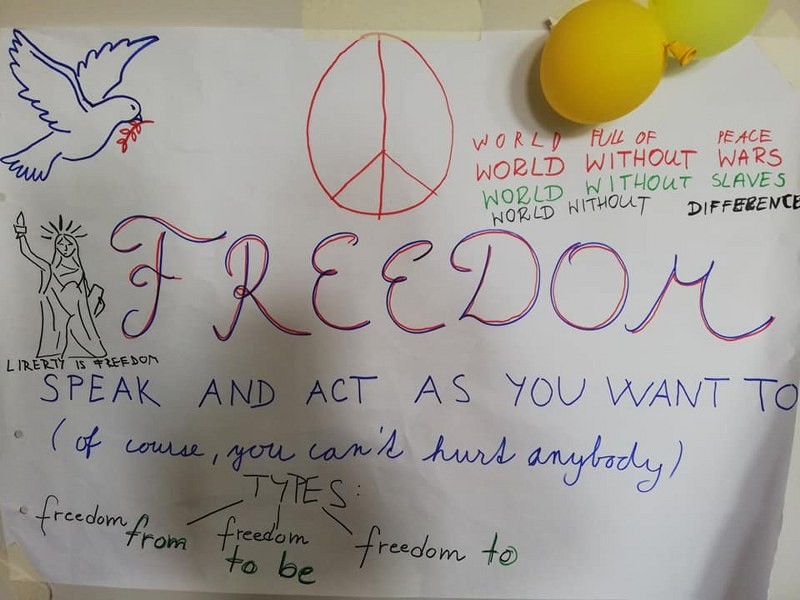 WORLD FULL OF PEACE
WORLD WITHOUT WARS
WORLD WITHOUT SLAVES
WORLD WITHOUT DIFFERENCE
FREEDOM
LIBERTY IS FREEDOM
SPEAK AND ACT AS YOU WANT TO
(of course, you can't hurt anybody)
TYPES:
freedom from
freedom to be
freedom to